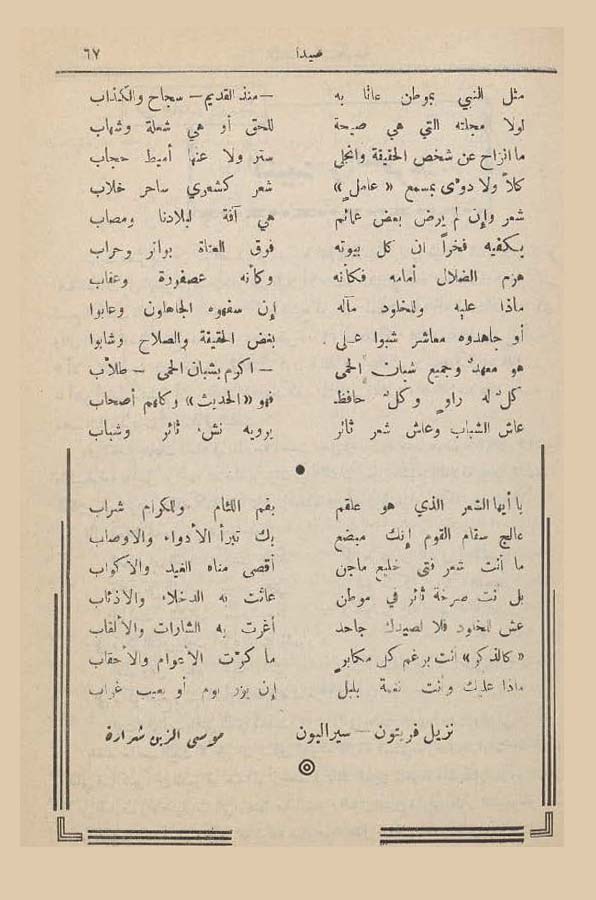 صيدا ٦٧
مثل النبي بموطن عاثا به — منذ القديم — سجاح والكذاب
لولا مجلته التي هي صيحة للحق أو هي شعلة وشهاب
ما انزاح عن شخص الحقيقة وانجلى ستر ولا عنها أميط حجاب
كلا ولا دوى بمسمع « عامل » شعر كشعري ساحر خلاب
شعر وإن لم يرض بعض عمائم هي آفة لبلادنا ومصاب
يكفيه فخراً ان كل بيوته فوق العتاة بواتر وحراب
هزم الضلال أمامه فكأنه وكأنه عصفورة وعقاب
ماذا عليه وللخلود مآله إن سفهوه الجاهلون وعابوا
أو جاهدوه معاشر شبوا على بغض الحقيقة والصلاح وشابوا
هو معهد وجميع شبان الحمى — اكرم بشبان الحمى — طلاب
كل له راو وكل حافظ فهو « الحديث » وكلهم أصحاب
عاش الشباب وعاش شعر ثائر يرويه نشء ثائر وشباب
يا أيها الشعر الذي هو علقم بفم اللئام وللكرام شراب
عالج سقام القوم إنك مبضع بك تبرأ الأدواء والاوصاب
ما أنت شعر فتى خليع ماجن أقصى مناه الغيد والأكواب
بل أنت صرخة ثائر في موطن عاثت به الدخلاء والاذناب
عش للخلود فلا لصيدك جاحد أغرت به الشارات والألقاب
« كالذكر » انت برغم كل مكابر ما كرت الأعوام والأحقاب
ماذا عليك وأنت نغمة بلبل إن يزر بوم أو يعيب غراب
نزيل فريتون — سيراليون موسى الزين شرارة